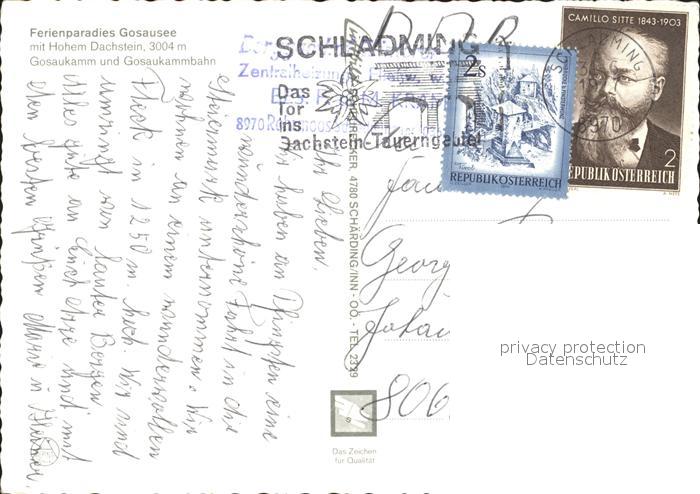 Ferienparadies Gosausee
mit Hohem Dachstein, 3004 m
Gosaukamm und Gosaukammbahn
SCHLADMING
Das
Tor
ins
Dachstein-Tauerngebiet
Zentralheizung
8970
SCHLADMING
8970
2s
REPUBLIK ÖSTERREICH
CAMILLO SITTE 1843-1903
2
REPUBLIK ÖSTERREICH
4780 SCHÄRDING/INN - OÖ. - TEL. 2329
Ihr Lieben.
Wir haben an Pfingsten eine
wunderschöne Fahrt in die
Steiermark unternommen. Wir
wohnen an einem wundervollen
Fleck in 1250 m. hoch. Wir sind
umringt von lauter Bergen
Alles gute an Euch und mit
den besten Grüßen Maria u
Georg
806
Das Zeichen
für Qualität
privacy protection
Datenschutz